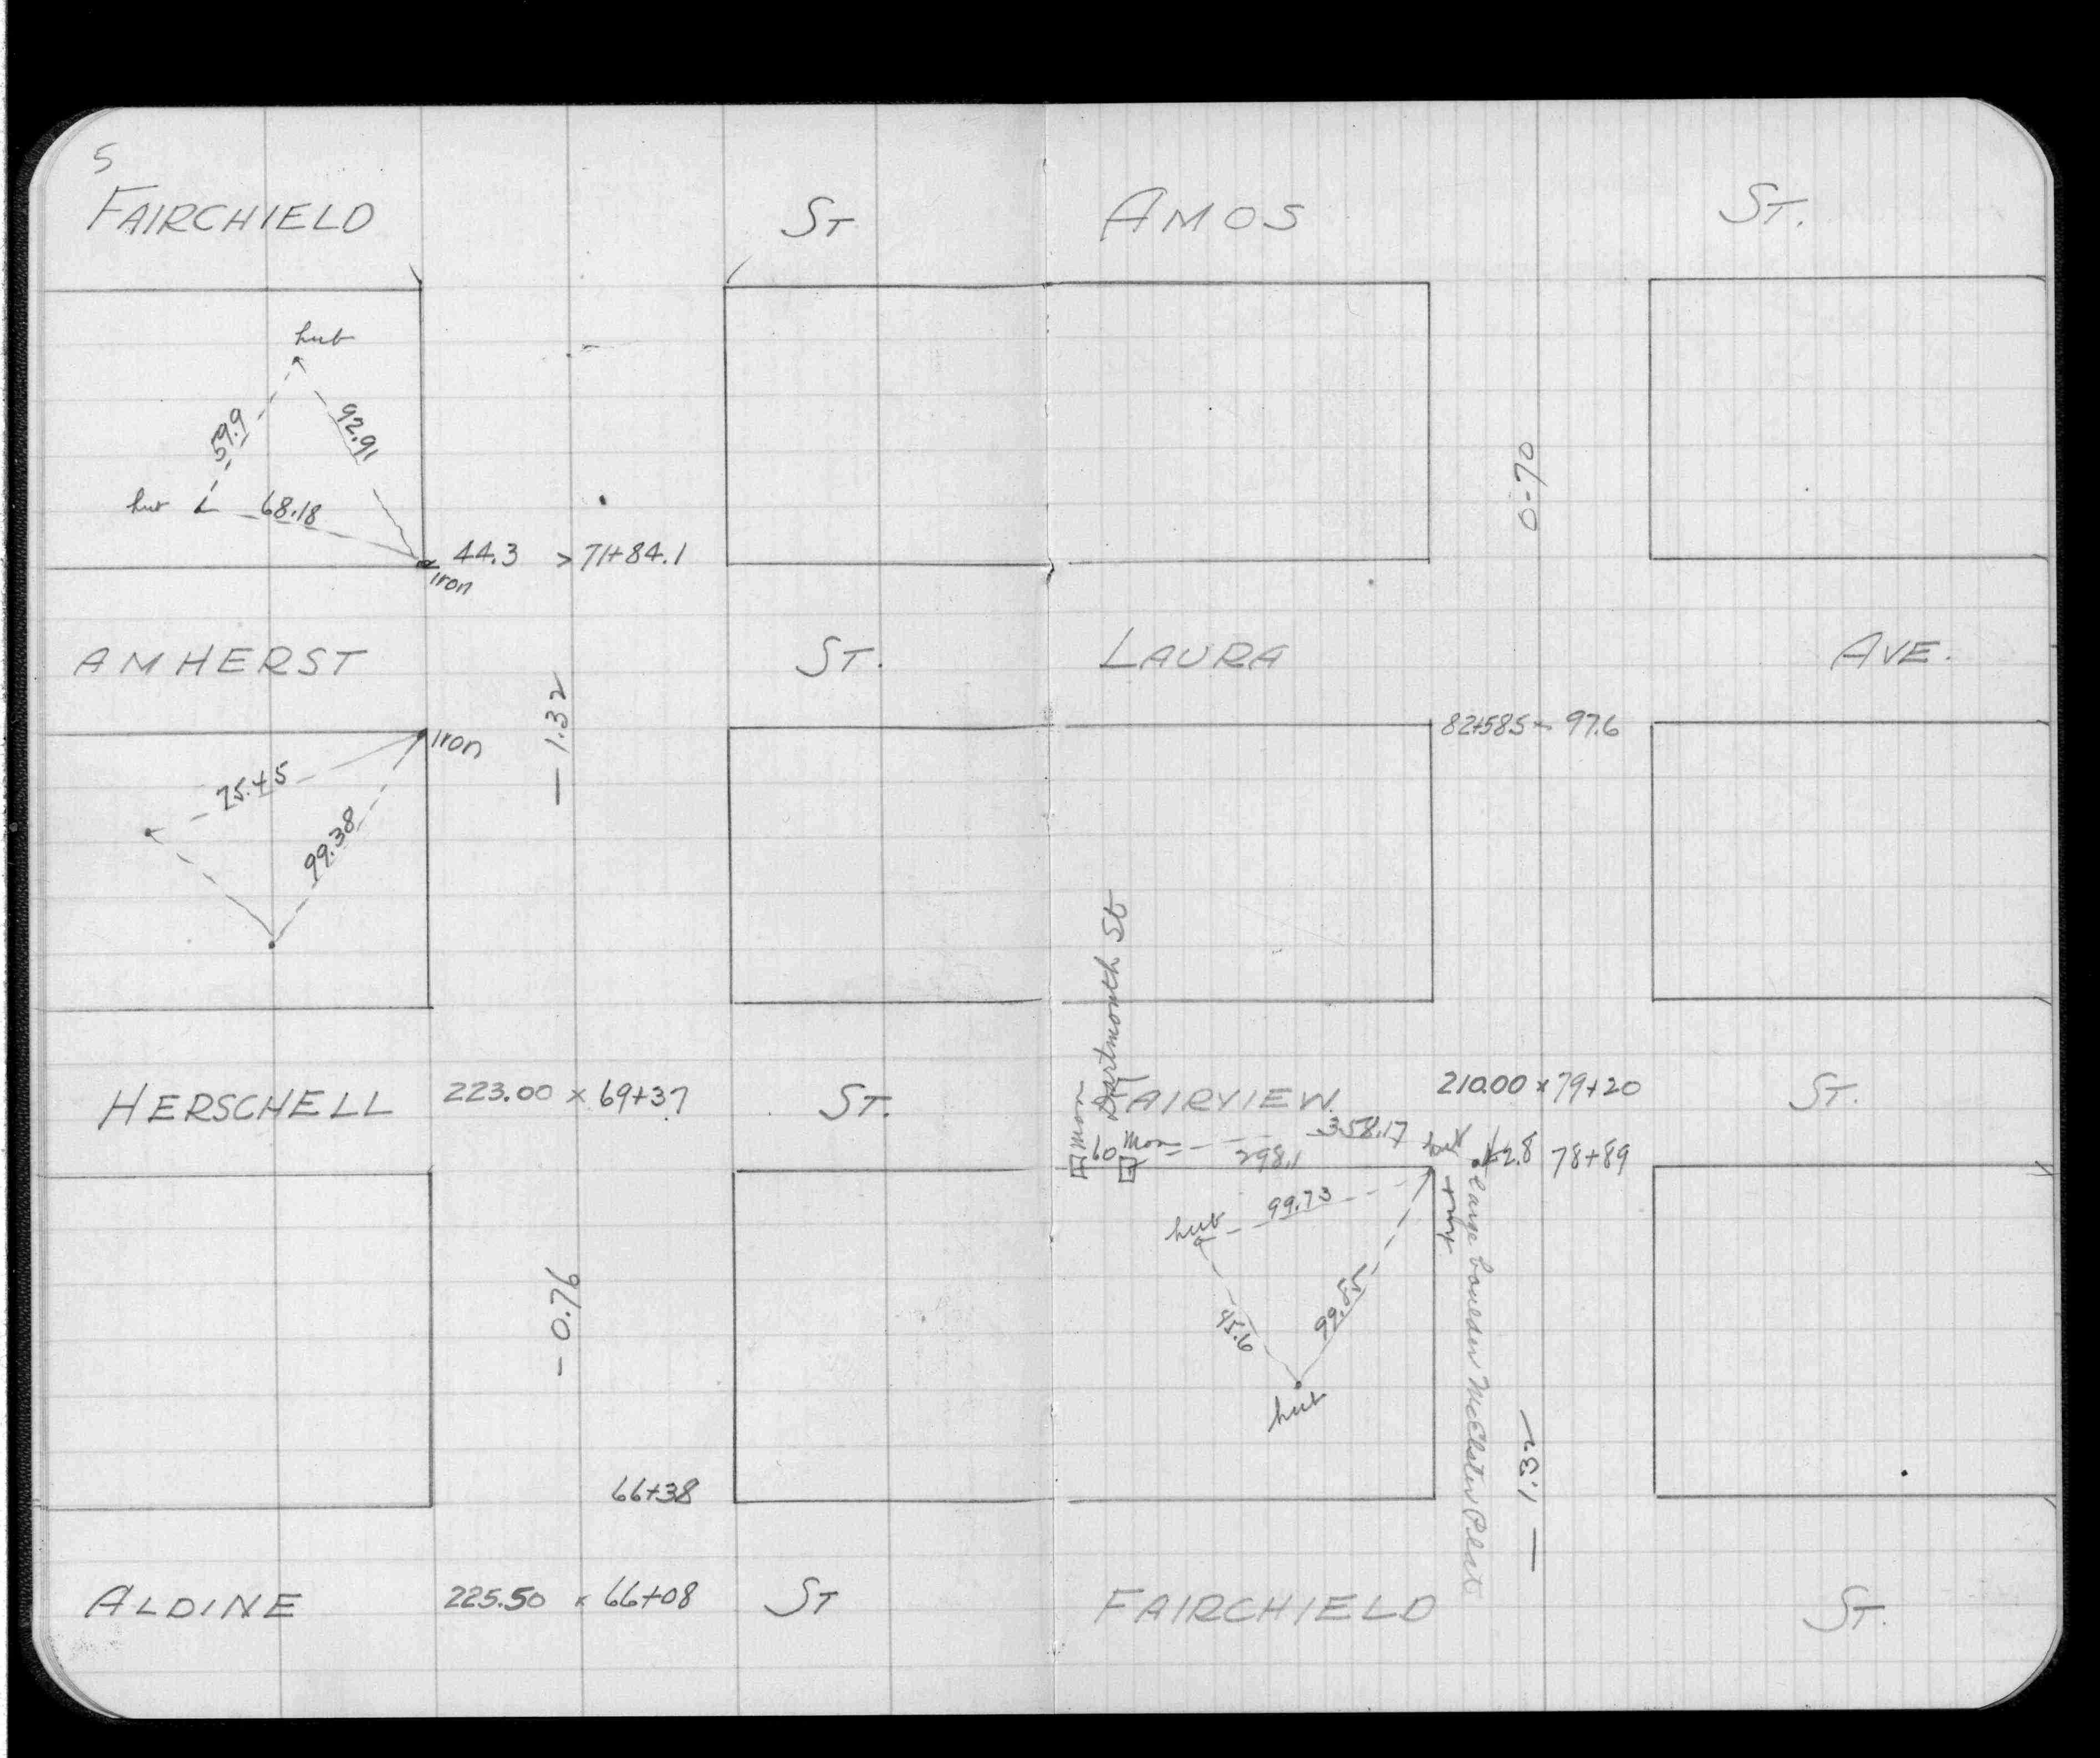 5
FAIRCHIELD ST
hub
59.9
92.91
hub 68.18
44.3 > 71+84.1
iron
AMHERST ST.
iron
- 1.32
75.45
99.38
HERSCHELL 223.00 x 69+37 ST.
- 0.76
66+38
ALDINE 225.50 x 66+08 ST
AMOS ST.
0-70
LAURA AVE.
82+585 - 97.6
Dartmouth St
FAIRVIEW 210.00 x 79+20 ST.
Mon
60
Mon
358.17
298.1
hub
78+89
hub 99.73
45.6
hub
large boulder
- 1.32
FAIRCHIELD ST.